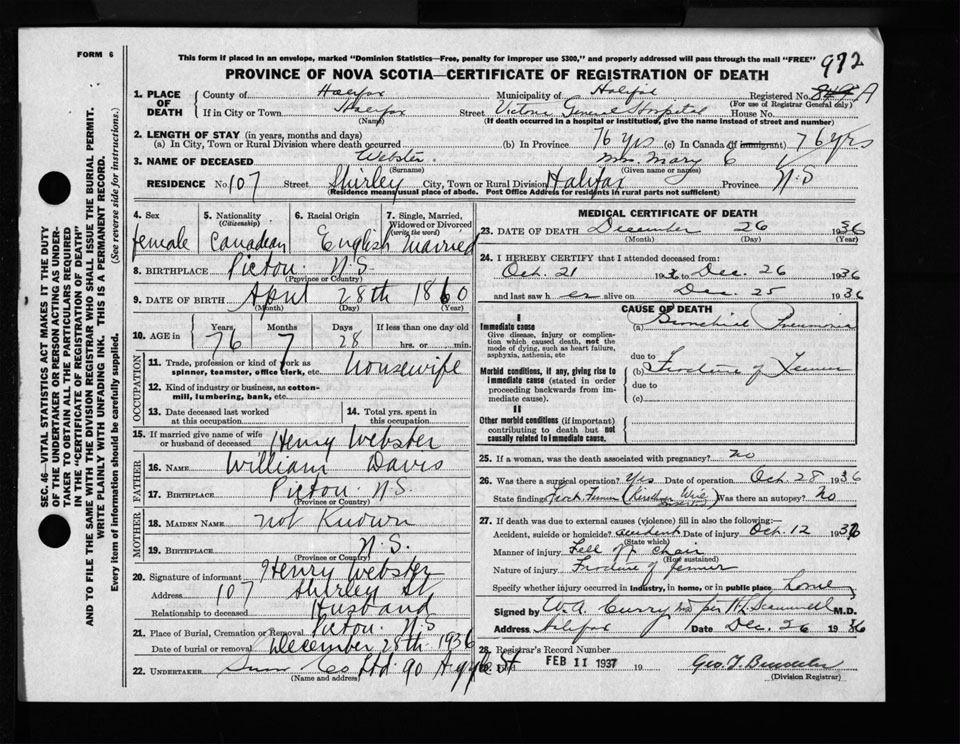 FORM 6
This form if placed in an envelope, marked "Dominion Statistics—Free, penalty for improper use $300," and properly addressed will pass through the mail "FREE"
972
PROVINCE OF NOVA SCOTIA—CERTIFICATE OF REGISTRATION OF DEATH
1. PLACE OF DEATH
County of Halifax Municipality of Halifax Registered No. A
(For use of Registrar General only)
If in City or Town Halifax Street Victoria General Hospital House No.
(Name) (If death occurred in a hospital or institution, give the name instead of street and number)
2. LENGTH OF STAY (in years, months and days)
(a) In City, Town or Rural Division where death occurred (b) In Province 76 yrs (c) In Canada (if immigrant) 76 yrs
3. NAME OF DECEASED Webster. Mrs. Mary C
(Surname) (Given name or names)
RESIDENCE No. 107 Street Shirley City, Town or Rural Division Halifax Province N.S
(Residence means usual place of abode. Post Office Address for residents in rural parts not sufficient)
SEC. 46—VITAL STATISTICS ACT MAKES IT THE DUTY
OF THE UNDERTAKER OR PERSON ACTING AS UNDER-
TAKER TO OBTAIN ALL THE PARTICULARS REQUIRED
IN THE "CERTIFICATE OF REGISTRATION OF DEATH"
AND TO FILE THE SAME WITH THE DIVISION REGISTRAR WHO SHALL ISSUE THE BURIAL PERMIT.
WRITE PLAINLY WITH UNFADING INK. THIS IS A PERMANENT RECORD.
Every item of information should be carefully supplied. (See reverse side for instructions.)
4. Sex 5. Nationality 6. Racial Origin 7. Single, Married,
(Citizenship) Widowed or Divorced
(write the word)
female Canadian English Married
8. BIRTHPLACE Pictou N.S.
(Province or Country)
9. DATE OF BIRTH April 28th 1860
(Month) (Day) (Year)
10. AGE in Years, Months Days If less than one day old
76 7 28 hrs. or min.
OCCUPATION
11. Trade, profession or kind of work as
spinner, teamster, office clerk, etc. housewife
12. Kind of industry or business, as cotton-
mill, lumbering, bank, etc.
13. Date deceased last worked
at this occupation
14. Total yrs. spent in
this occupation
15. If married give name of wife
or husband of deceased Henry Webster
FATHER
16. NAME William Davis
17. BIRTHPLACE Pictou N.S.
(Province or Country)
MOTHER
18. MAIDEN NAME not Known
19. BIRTHPLACE N.S.
(Province or Country)
20. Signature of informant Henry Webster
Address 107 Shirley St
Relationship to deceased Husband
21. Place of Burial, Cremation or Removal Pictou. N.S
Date of burial or removal December 28th 1936
22. UNDERTAKER Snow Co Ltd 90 St
(Name and address)
MEDICAL CERTIFICATE OF DEATH
23. DATE OF DEATH December 26 1936
(Month) (Day) (Year)
24. I HEREBY CERTIFY that I attended deceased from:
Oct. 21 193 to Dec. 26 1936
and last saw her alive on Dec. 25 1936
CAUSE OF DEATH
I
Immediate cause (a) Bronchial Pneumonia
Give disease, injury or complica-
tion which caused death, not the
mode of dying, such as heart failure,
asphyxia, asthenia, etc
due to
Morbid conditions, if any, giving rise to (b) Fracture of Femur
immediate cause (stated in order due to
proceeding backwards from im-
mediate cause). (c)
II
Other morbid conditions (if important)
contributing to death but not
causally related to immediate cause.
25. If a woman, was the death associated with pregnancy? no
26. Was there a surgical operation? Yes Date of operation Oct 28 1936
State findings Fract. Femur (Kirschner Wire inserted) Was there an autopsy? No
27. If death was due to external causes (violence) fill in also the following:—
Accident, suicide or homicide? accident Date of injury Oct. 12 1936
(State which)
Manner of injury Fell off chair
(How sustained)
Nature of injury Fracture of femur
Specify whether injury occurred in industry, in home, or in public place home
Signed by W.A. Curry per M.D.
Address Halifax Date Dec. 26 1936
28. Registrar's Record Number
Filed FEB 11 1937 19
(Division Registrar)